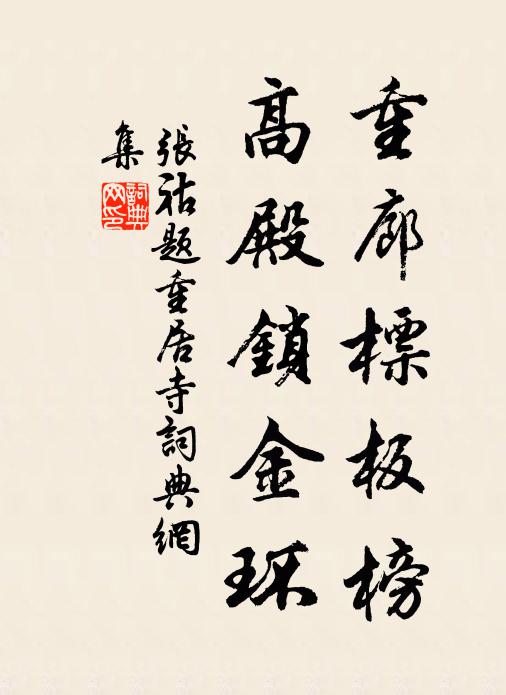 重廊標板榜
高殿鎖金环
張祜題重居寺詞典網
集
詞典
网印